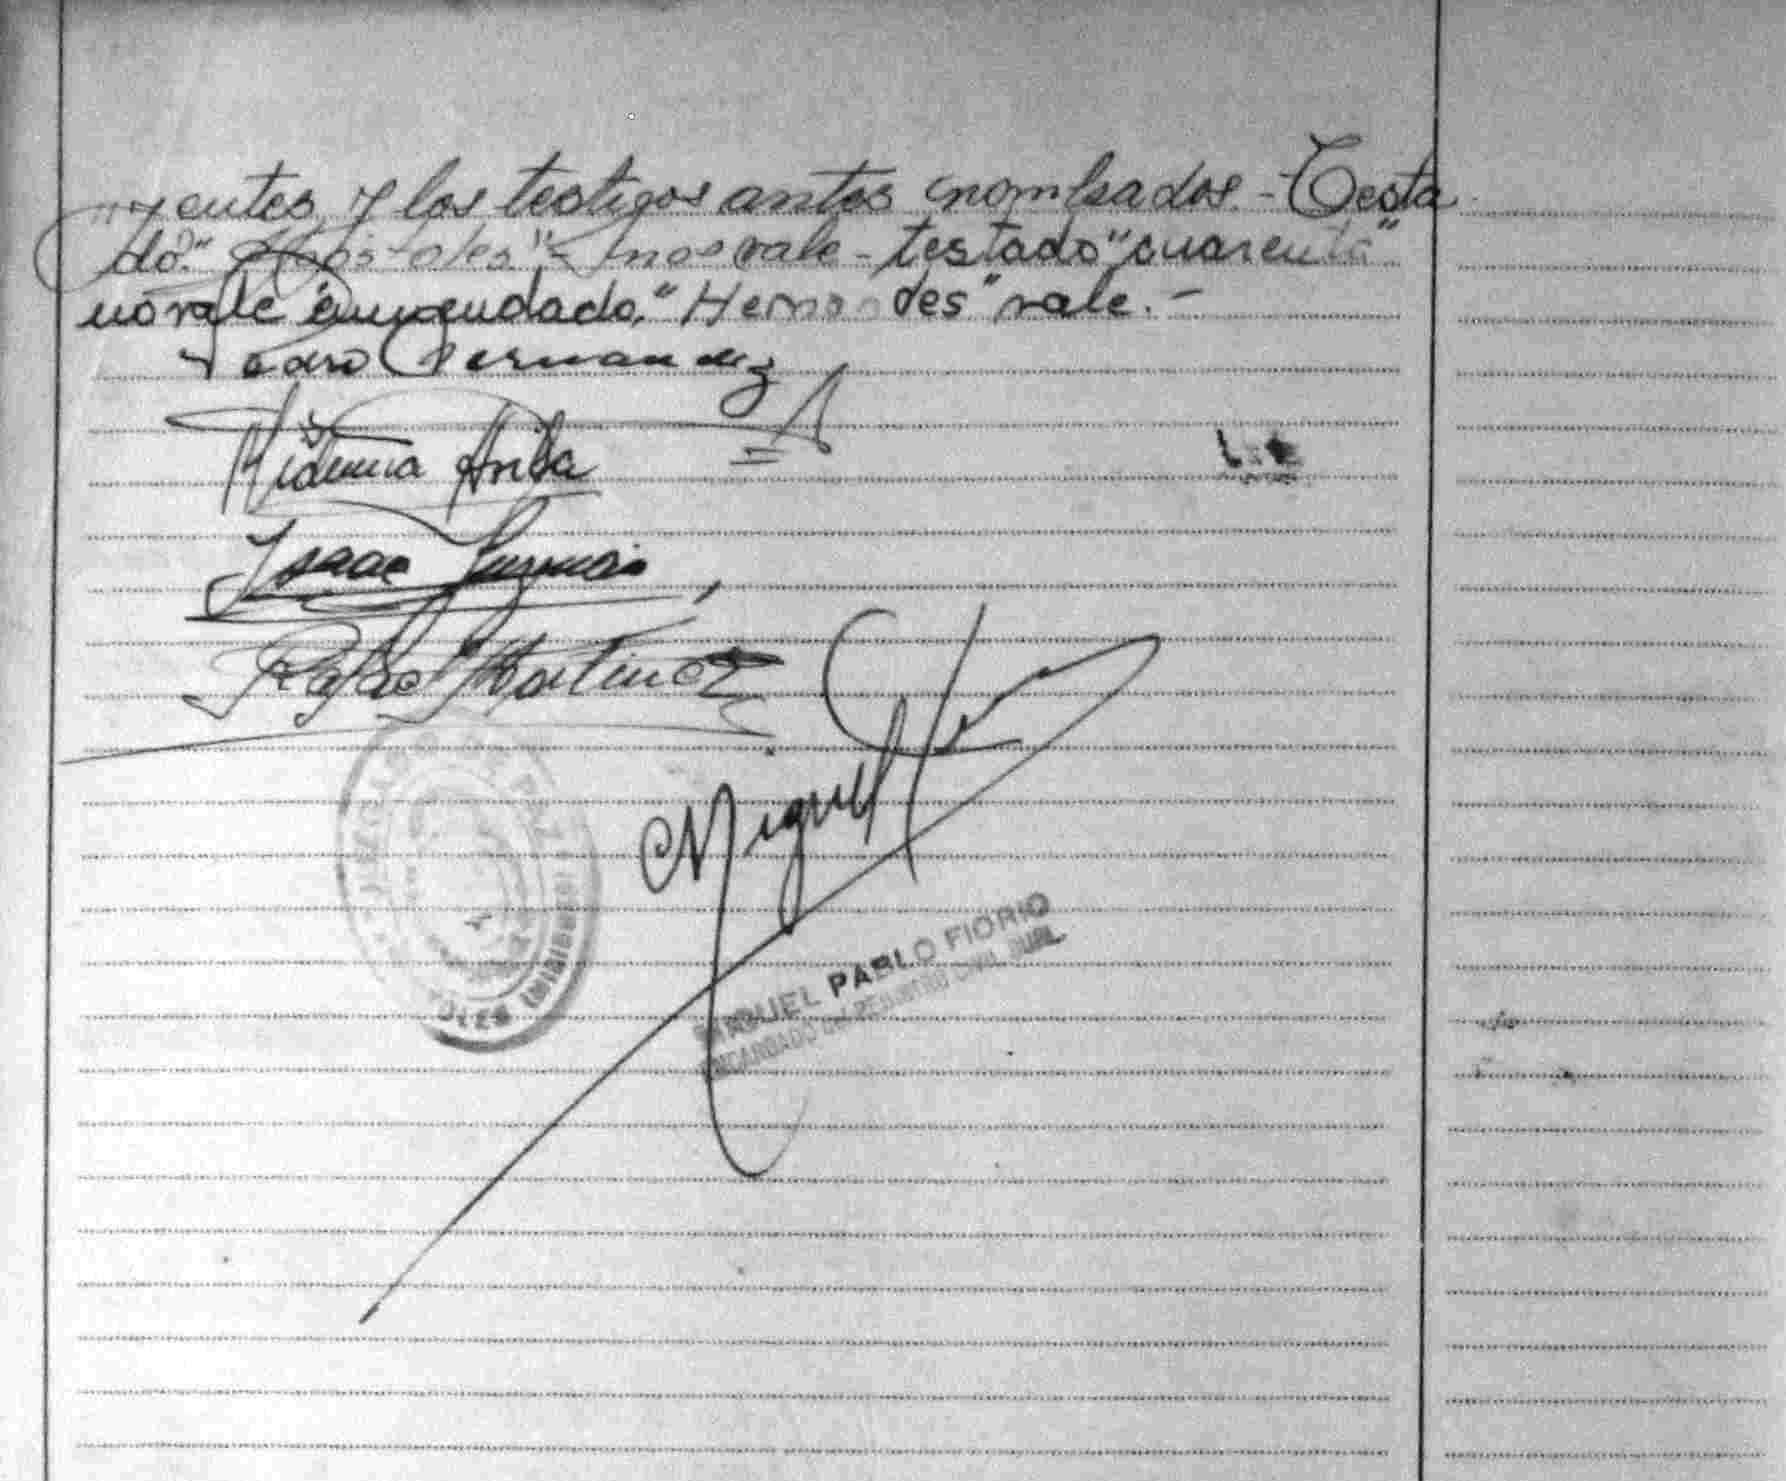 "yentes y los testigos antes nombrados.- Testa
do." "- no vale - testado "cuarenta"
no vale enmendado, " vale.-
Pedro Fernandez
Ariba
Isaac Guzman
Rafael Martinez
Miguel
MIGUEL PABLO FIORIO
ENCARGADO DEL REGISTRO CIVIL SUPL.